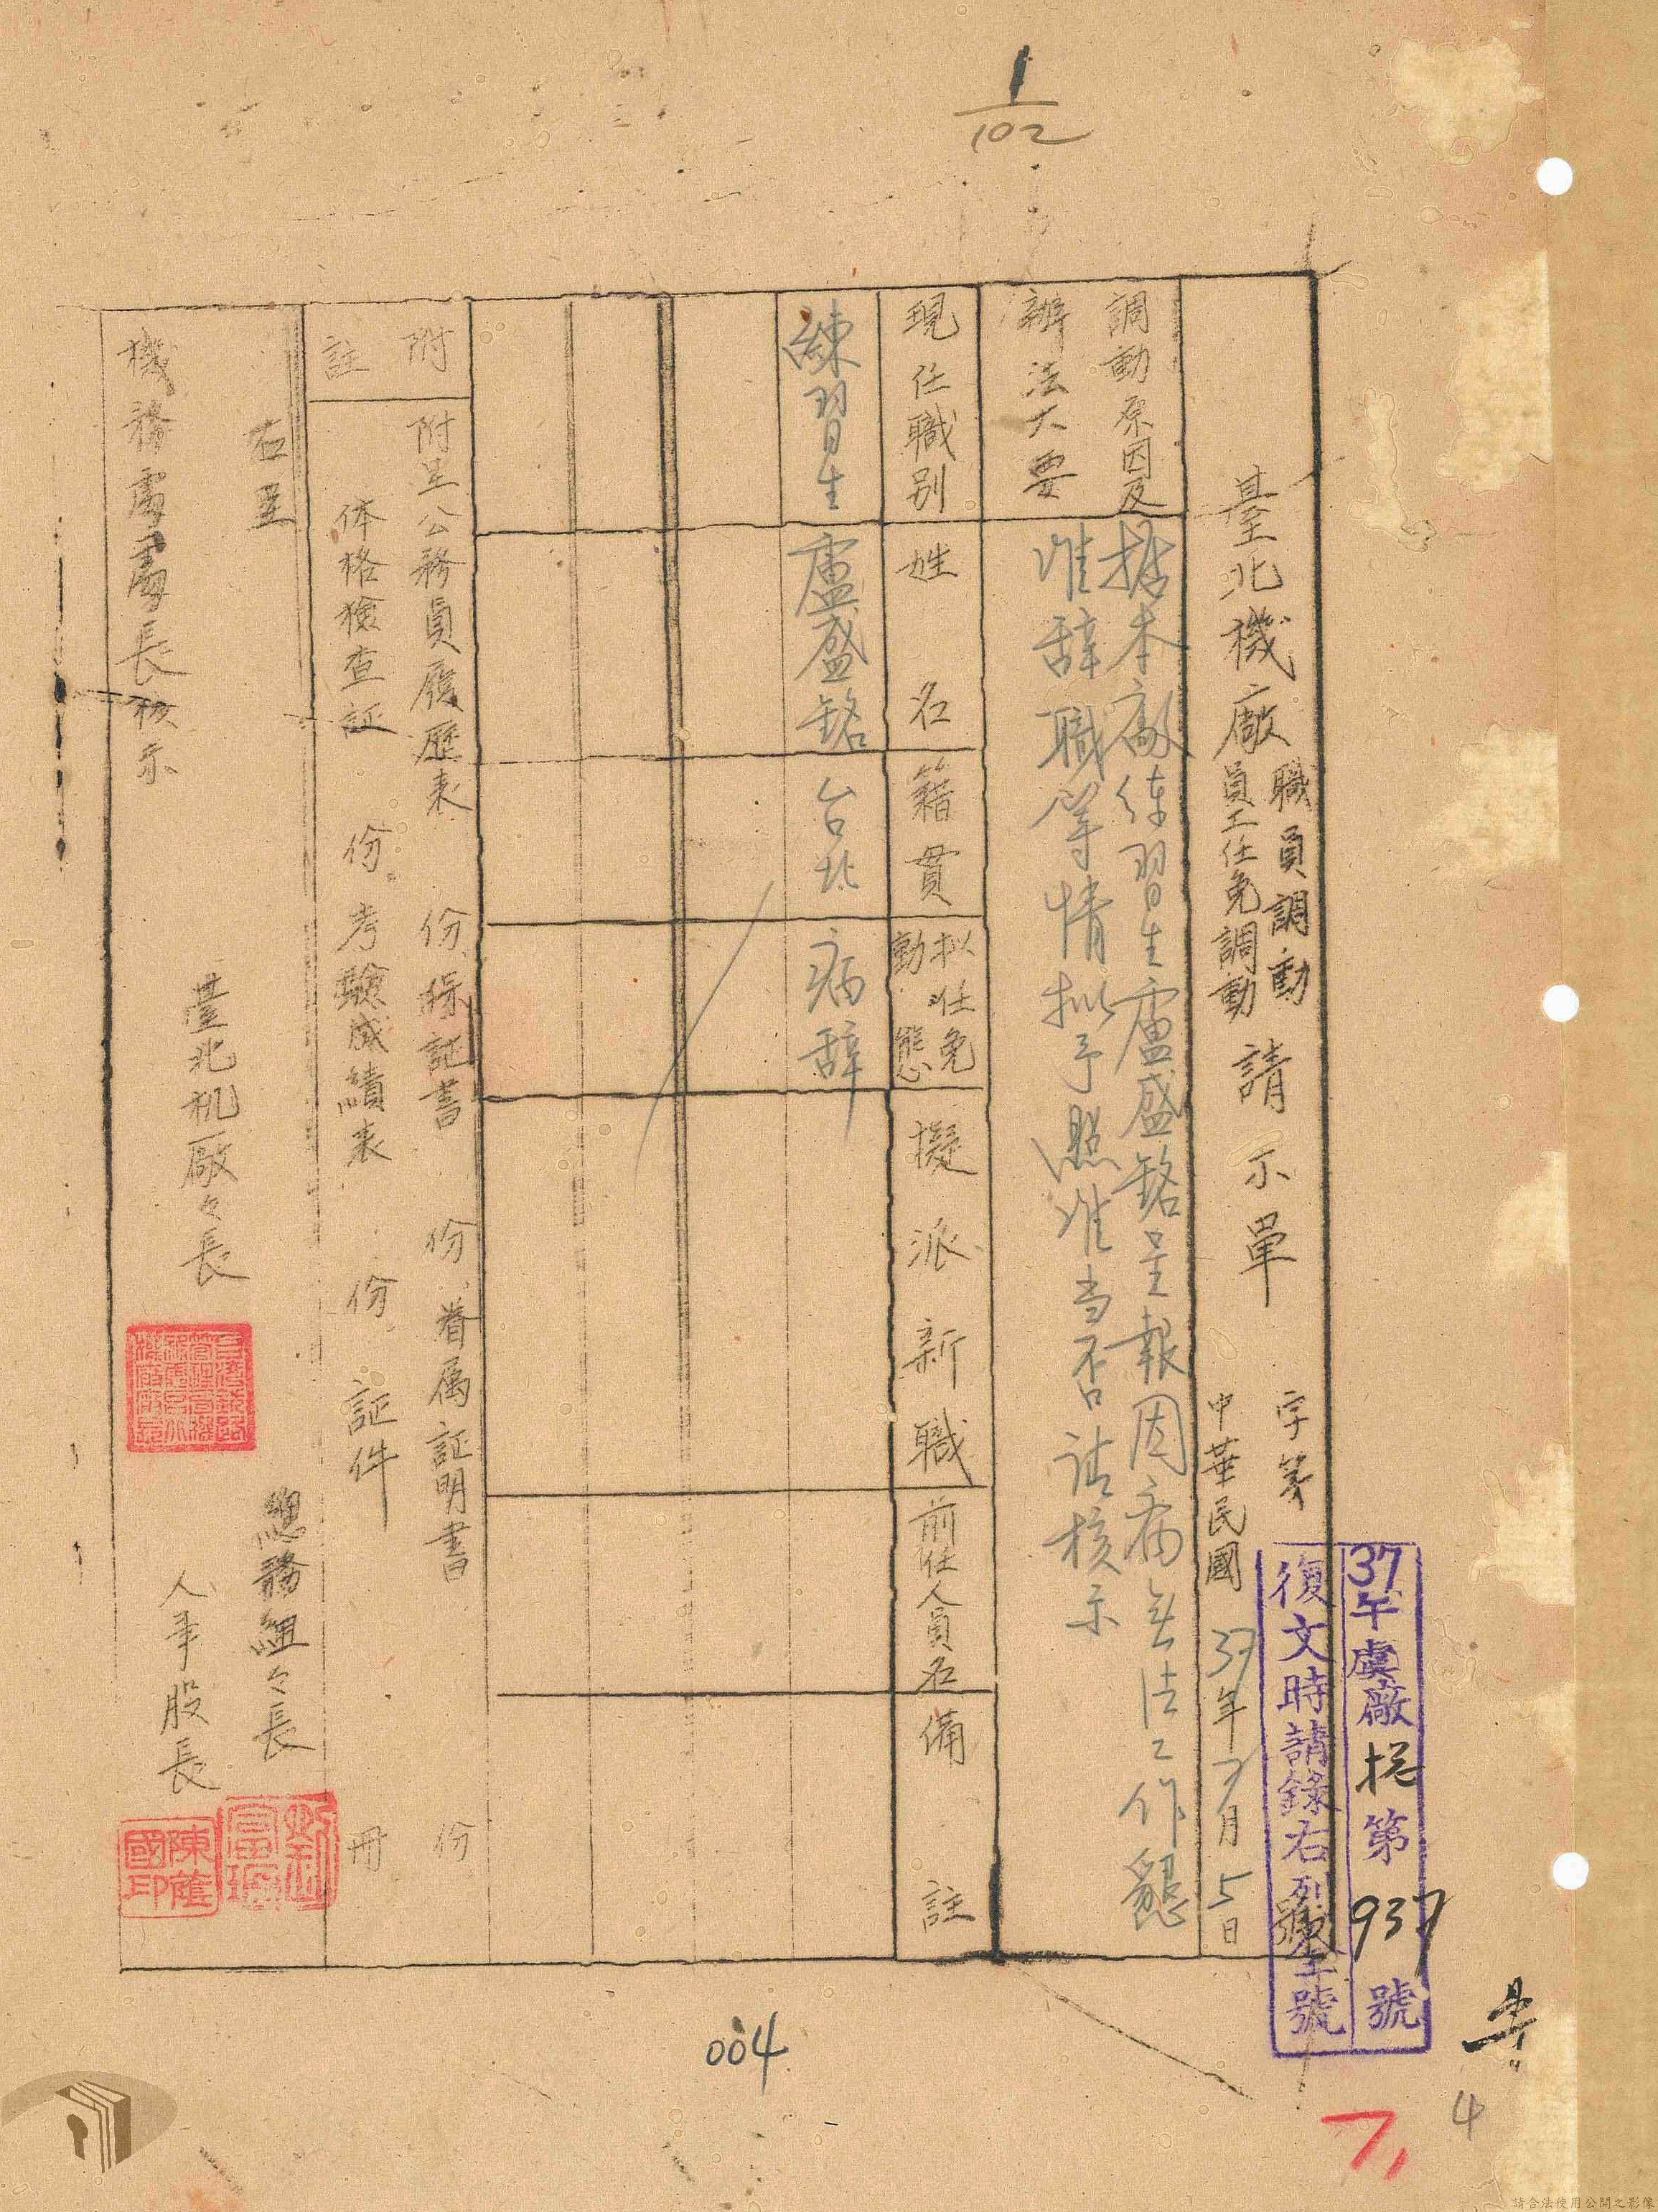 1
102
37年虞廠 挖 第 937 號
復文時請錄右列全號
臺北機廠
職員調動
員工任免調動
請示單
字第 號
中華民國 37年7月5日
調動原因及
辦法大要
据本廠练習生盧盛銘呈報因病無法工作懇
准辞職等情拟予照准当否请核示
現任職別
姓名
籍貫
拟任免
動態
擬派新職
前任人員名
備註
練習生
盧盛銘
台北
病辞
附註
附呈公務員履歷表 份 保証書 份 眷属証明書 份
体格檢查証 份 考驗成績表 份 証件 冊
右呈
機務處處長核示
臺北机廠々長
總務組々長
人事股長
陳薩國印
004
4
請合法使用公開之影像